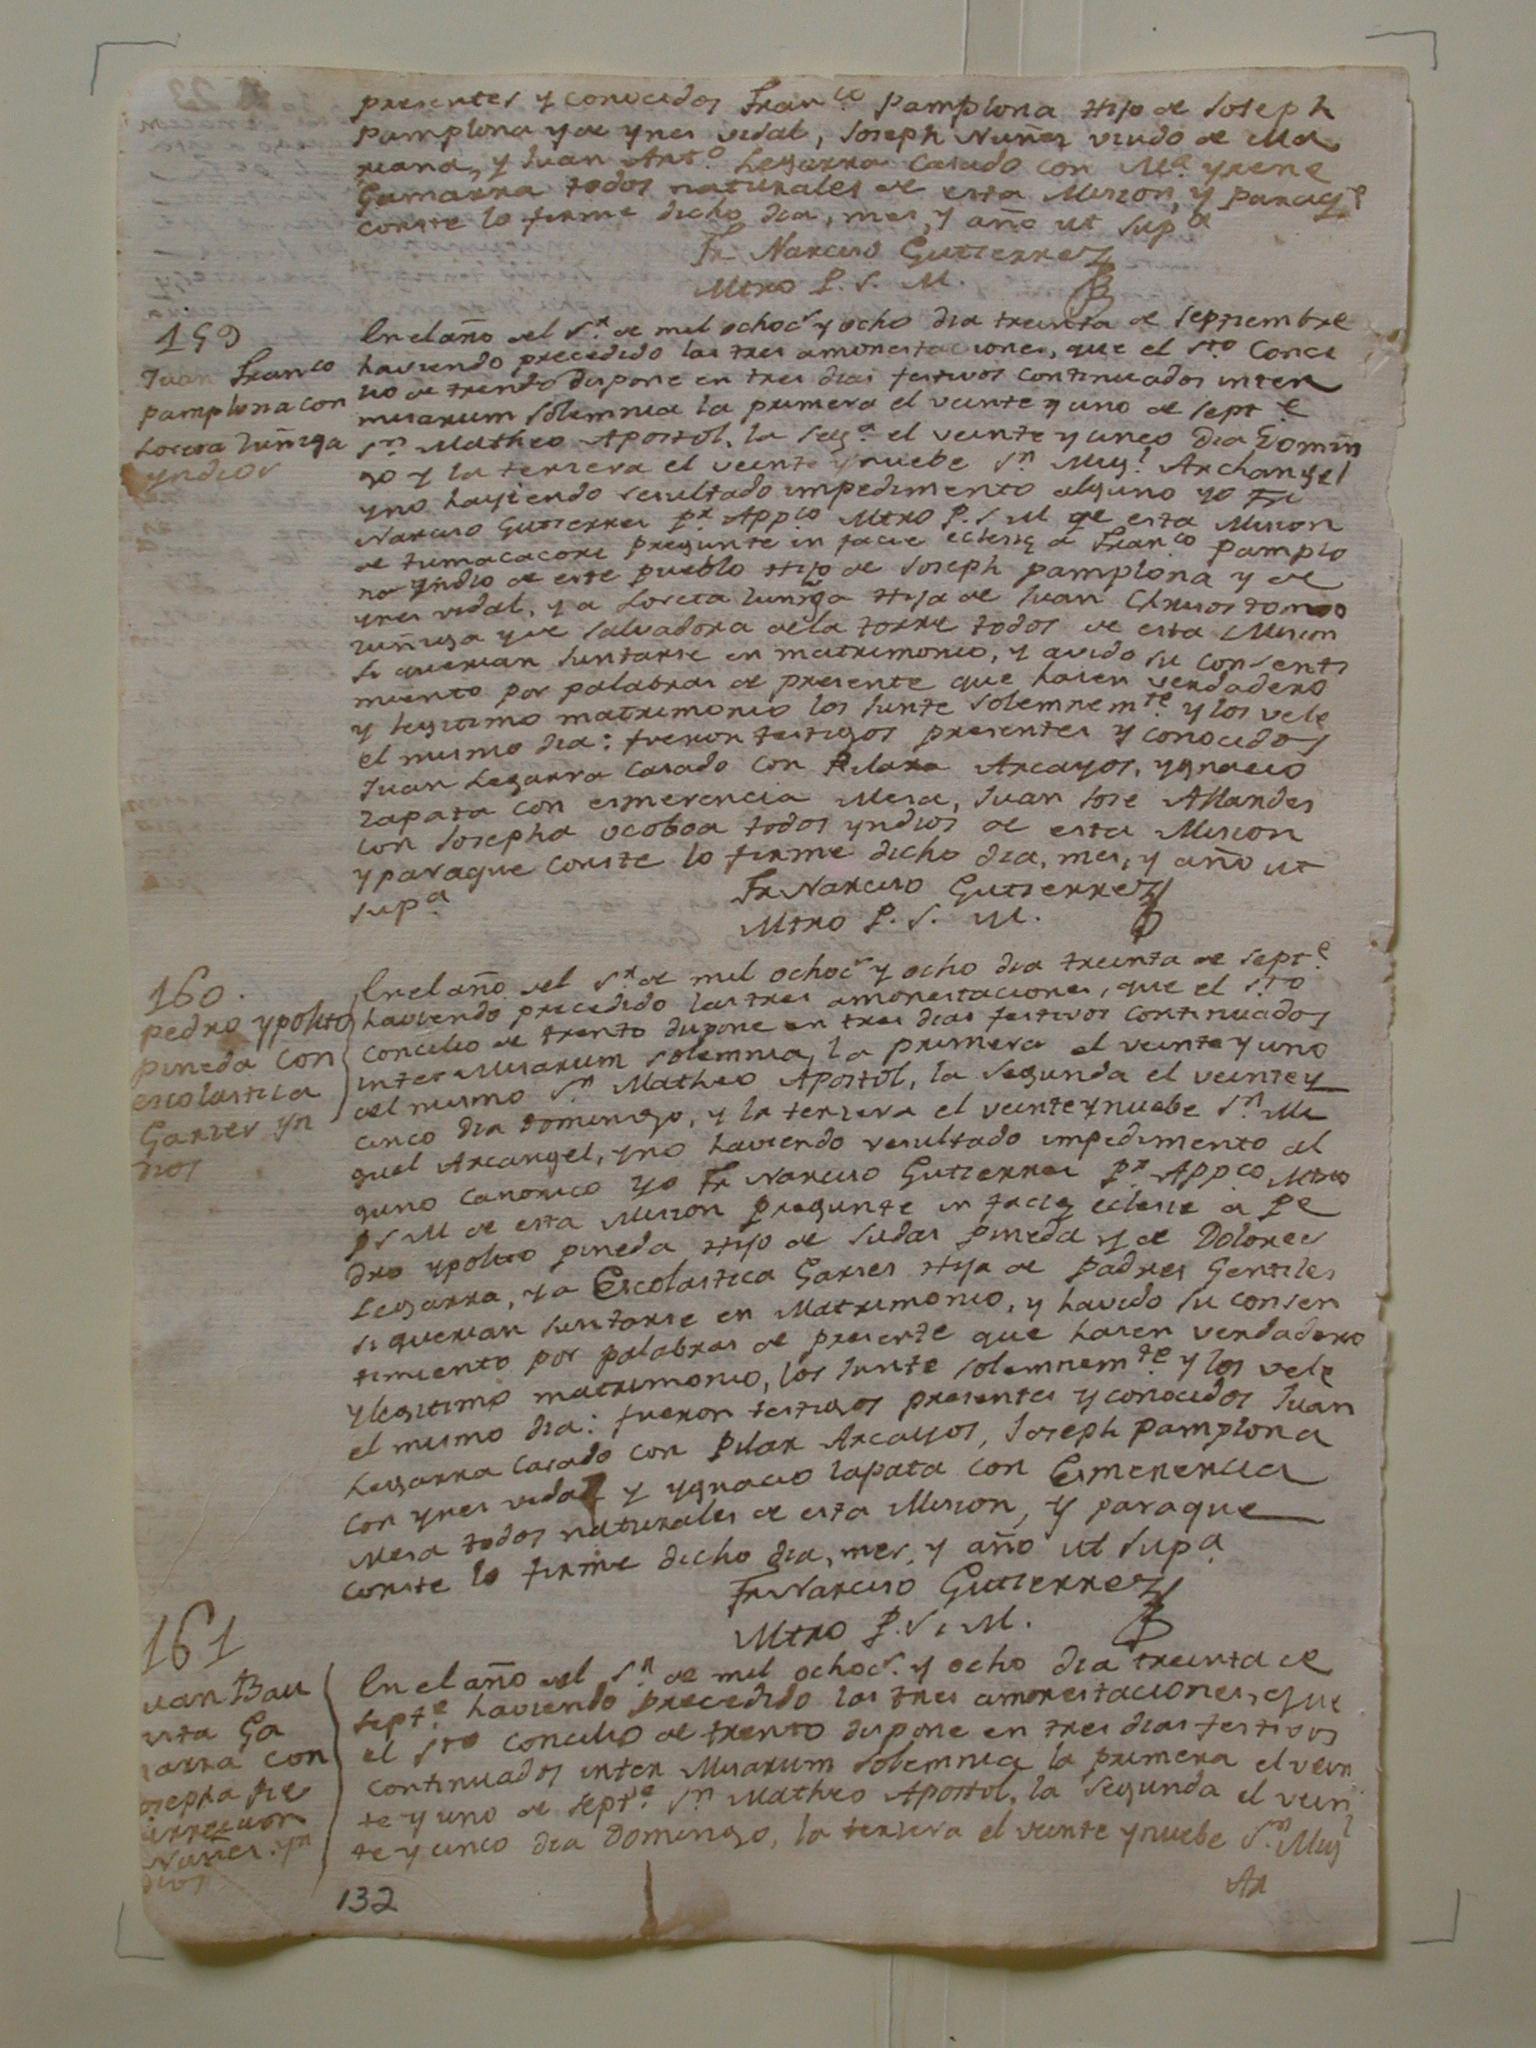 presentes y conocidos Fran.co Pamplona Hijo de Joseph
Pamplona y de ynes vidal, Joseph Nuñes viudo de Ma
riana, y Juan Ant.o Legarra Casado con M.a yrene
Gamarra todos naturales de esta Mision, y paraq.e
conste lo firme dicho dia, mes, y año ut sup.a
Fr Narciso Gutierrez
Mtro P. S. M.
159
Juan Fran.co
Pamplona con
Loreta Zuñiga
yndios
En el año del S.r de mil ochoc.s y ocho dia treinta de Septiembre
haviendo precedido las tres amonestaciones, que el S.to Conci
lio de trento dispone en tres dias festivos continuados inter
misarum solemnia la primera el veinte y uno de sept.e
S.n Matheo Apostol, la seg.a el veinte y cinco dia Domin
go y la tersera el veinte y nuebe S.n Mig.l Archangel
y no haviendo resultado impedimento alguno yo Fr
Narciso Gutierres P.r App.co Mtro P. S. M de esta Mision
de tumacacori pregunte in facie eclesiȩ a Fran.co Pamplo
na yndio de este pueblo Hijo de Joseph pamplona y de
ynes vidal, y a Loreta Zuniga Hija de Juan Chrisostomo
zuñiga y de Salvadora de la torre todos de esta Mision
si querian Juntarse en matrimonio, y avido su consenti
miento por palabras de presente que hasen verdadero
y legitimo matrimonio los Junte solemnem.te y los vele
el mismo dia: fueron testigos presentes y conocidos
Juan Legarra casado con Pilara Arcayos, ygnacio
zapata con esmerencia Mesa, Juan Jose Allandes
con Josepha ocoboa todos yndios de esta Mision
y paraque conste lo firme dicho dia, mes, y año ut
sup.a
Fr Narciso Gutierrez
Mtro P. S. M.
160.
Pedro ypolito
pineda con
escolastica
Garses yn
dios
En el año del S.r de mil ochoc.s y ocho dia treinta de sept.e
haviendo precedido las tres amonestaciones, que el S.to
Concilio de trento dispone en tres dias festivos continuados
inter Misarum solemnia, la primera el veinte y uno
del mismo S.n Matheo Apostol, la segunda el veinte y
cinco dia domingo, y la tersera el veinte y nuebe S.n Mi
guel Arcangel, y no haviendo resultado impedimento al
guno canonico yo Fr Narciso Gutierres P.r App.co Mtro
P S M de esta Mision pregunte in faciȩ eclesie a Pe
dro ypolito pineda Hijo de Judas pineda y de Dolores
Legarra, y a Escolastica Garses Hija de Padres Gentiles
si querian Juntarse en Matrimonio, y havido su consen
timiento por palabras de presente que hasen verdadero
y legitimo matrimonio, los Junte solemnem.te y los vele
el mismo dia: fueron testigos presentes y conocidos Juan
Legarra casado con Pilar Arcayos, Joseph Pamplona
con ynes vidal y ygnacio zapata con Esmerencia
Mesa todos naturales de esta Mision, y paraque
conste lo firme dicho dia, mes, y año ut sup.a
Fr Narciso Gutierrez
Mtro P. S. M.
161
uan Bau
ista Ga
arra con
osepha Re
urreccion
Nuñes. yn
dios
En el año del S.r de mil ochoc.s y ocho dia treinta de
sept.e haviendo precedido las tres amonestaciones, que
el S.to Concilio de trento dispone en tres dias festivos
continuados inter Misarum solemnia la primera el vein
te y uno de sept.e S.n Matheo Apostol, la segunda el vein
te y cinco dia Domingo, la tersera el veinte y nuebe S.n Mig.l
Ar
132